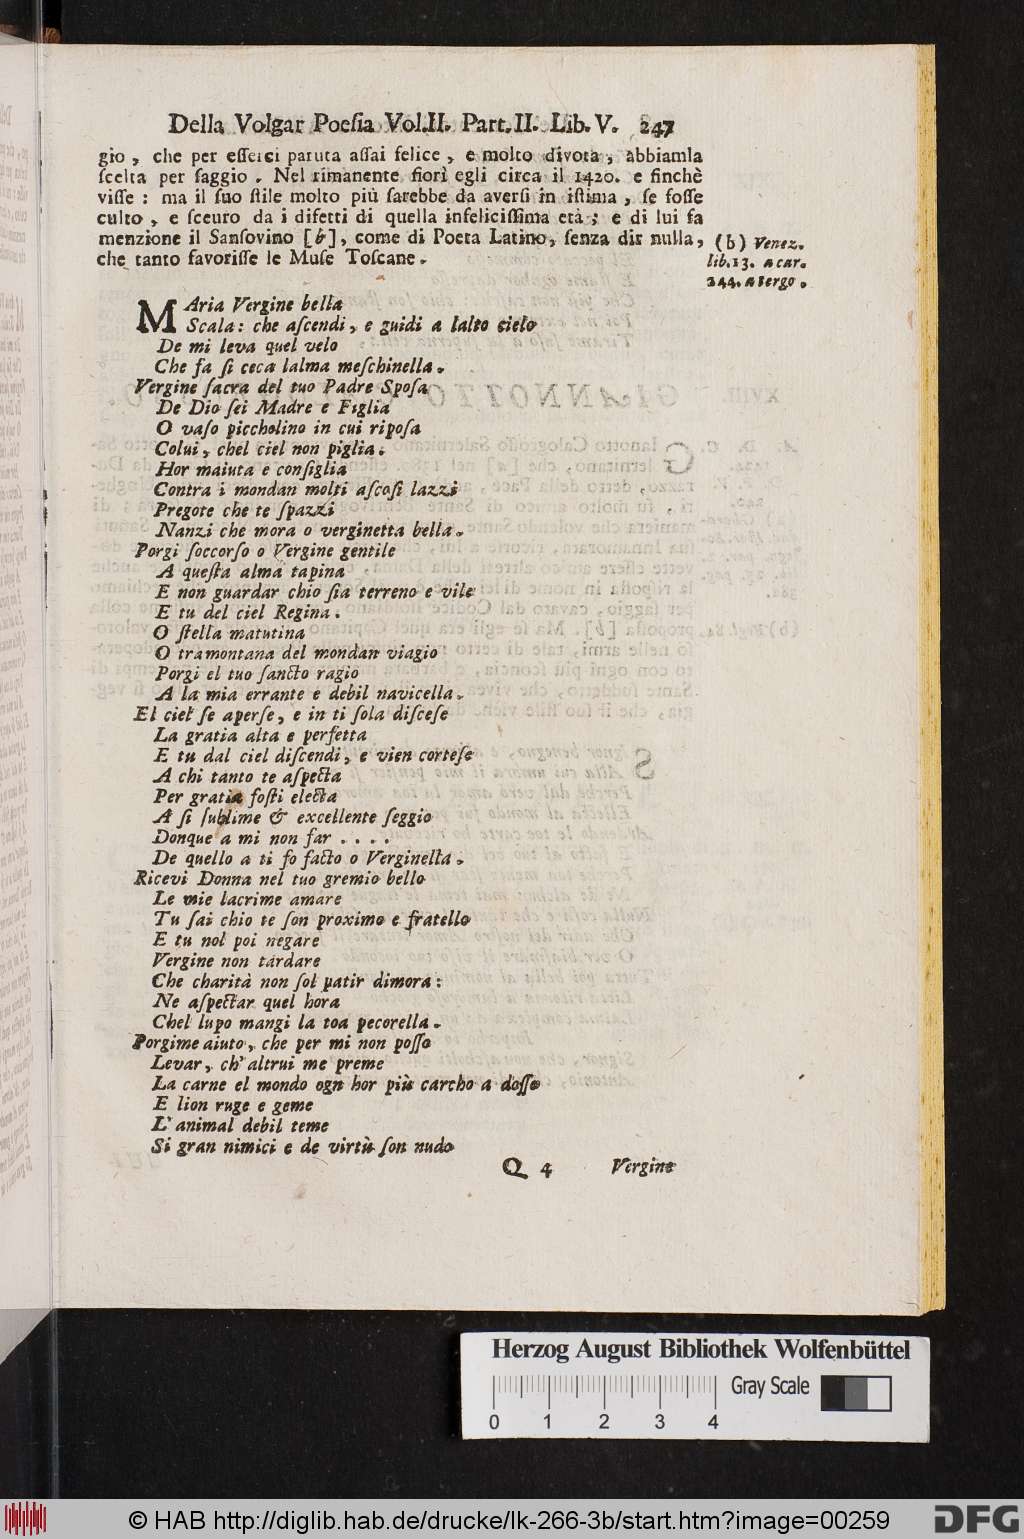 Della Volgar Poesia Vol.II. Part.II. Lib.V. 247
gio, che per esserci paruta assai felice, e molto divota, abbiamla
scelta per saggio. Nel rimanente fiorì egli circa il 1420. e finchè
visse: ma il suo stile molto più sarebbe da aversi in istima, se fosse
culto, e sceuro da i difetti di quella infelicissima età; e di lui fa
menzione il Sansovino [b], come di Poeta Latino, senza dir nulla,
che tanto favorisse le Muse Toscane.
(b) Venez.
lib.13. a car.
244. a tergo.
MAria Vergine bella
Scala: che ascendi, e guidi a lalto cielo
De mi leva quel velo
Che fa si ceca lalma meschinella.
Vergine sacra del tuo Padre Sposa
De Dio sei Madre e Figlia
O vaso piccholino in cui riposa
Colui, chel ciel non piglia.
Hor maiuta e consiglia
Contra i mondan molti ascosi lazzi
Pregote che te spazzi
Nanzi che mora o verginetta bella.
Porgi soccorso o Vergine gentile
A questa alma tapina
E non guardar chio sia terreno e vile
E tu del ciel Regina.
O stella matutina
O tramontana del mondan viagio
Porgi el tuo sancto ragio
A la mia errante e debil navicella.
El ciel se aperse, e in ti sola discese
La gratia alta e perfetta
E tu dal ciel discendi, e vien cortese
A chi tanto te aspecta
Per gratia fosti electa
A si sublime & excellente seggio
Donque a mi non far . . . .
De quello a ti fo facto o Verginella.
Ricevi Donna nel tuo gremio bello
Le mie lacrime amare
Tu sai chio te son proximo e fratello
E tu nol poi negare
Vergine non tardare
Che charità non sol patir dimora:
Ne aspectar quel hora
Chel lupo mangi la toa pecorella.
Porgime aiuto, che per mi non posso
Levar, ch'altrui me preme
La carne el mondo ogn hor più carcho a dosso
E lion ruge e geme
L'animal debil teme
Si gran nimici e de virtù son nudo
Q 4 Vergine
Herzog August Bibliothek Wolfenbüttel
Gray Scale
0 1 2 3 4
© HAB http://diglib.hab.de/drucke/lk-266-3b/start.htm?image=00259
DFG